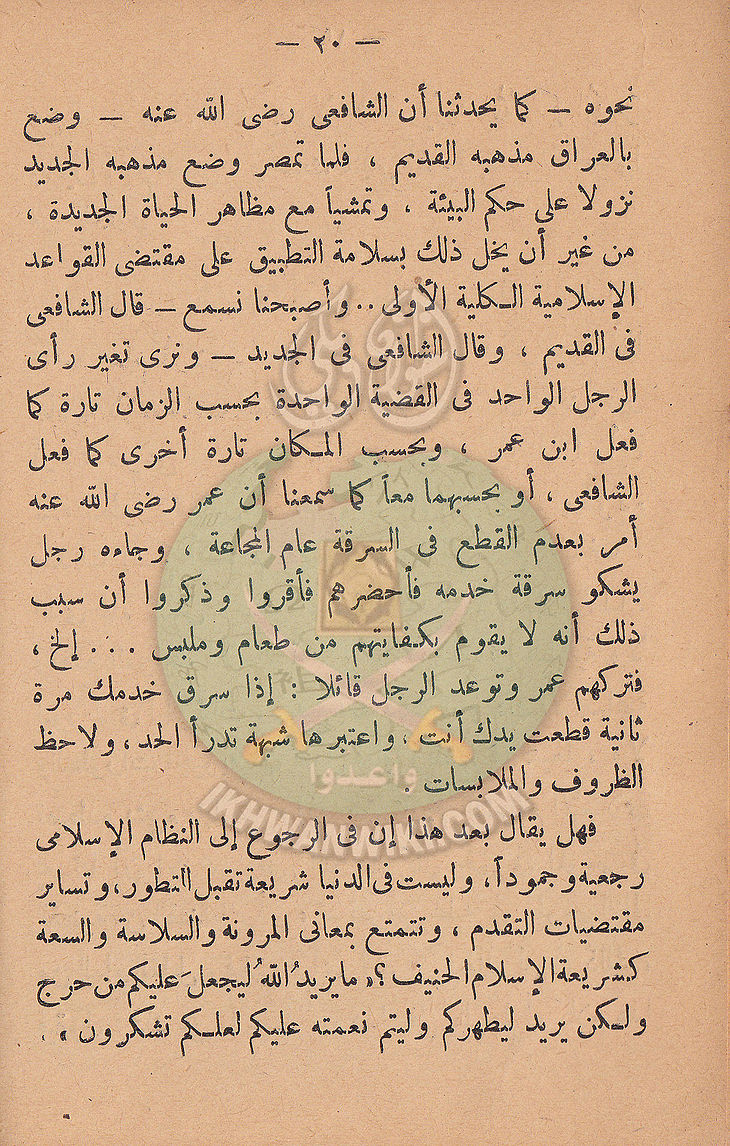 — ٢٠ —
نحوه — كما يحدثنا أن الشافعى رضى الله عنه — وضع
بالعراق مذهبه القديم ، فلما تمصر وضع مذهبه الجديد
نزولا على حكم البيئة ، وتمشياً مع مظاهر الحياة الجديدة ،
من غير أن يخل ذلك بسلامة التطبيق على مقتضى القواعد
الإسلامية الكلية الأولى .. وأصبحنا نسمع — قال الشافعى
فى القديم ، وقال الشافعى فى الجديد — ونرى تغير رأى
الرجل الواحد فى القضية الواحدة بحسب الزمان تارة كما
فعل ابن عمر ، وبحسب المكان تارة أخرى كما فعل
الشافعى ، أو بحسبهما معاً كما سمعنا أن عمر رضى الله عنه
أمر بعدم القطع فى السرقة عام المجاعة ، وجاءه رجل
يشكو سرقة خدمه فأحضرهم فأقروا وذكروا أن سبب
ذلك أنه لا يقوم بكفايتهم من طعام وملبس ... إلخ ،
فتركهم عمر وتوعد الرجل قائلا : إذا سرق خدمك مرة
ثانية قطعت يدك أنت ، واعتبرها شبهة تدرأ الحد ، ولاحظ
الظروف والملابسات .
فهل يقال بعد هذا إن فى الرجوع إلى النظام الإسلامى
رجعية وجموداً ، وليست فى الدنيا شريعة تقبل التطور ، وتساير
مقتضيات التقدم ، وتتمتع بمعانى المرونة والسلاسة والسعة
كشريعة الإسلام الحنيف ؟ « ما يريدُ اللهُ ليجعلَ عليكم من حرج
ولكن يريد ليطهركم وليتم نعمته عليكم لعلكم تشكرون » .
واعدوا
IKHWANWIKI.COM